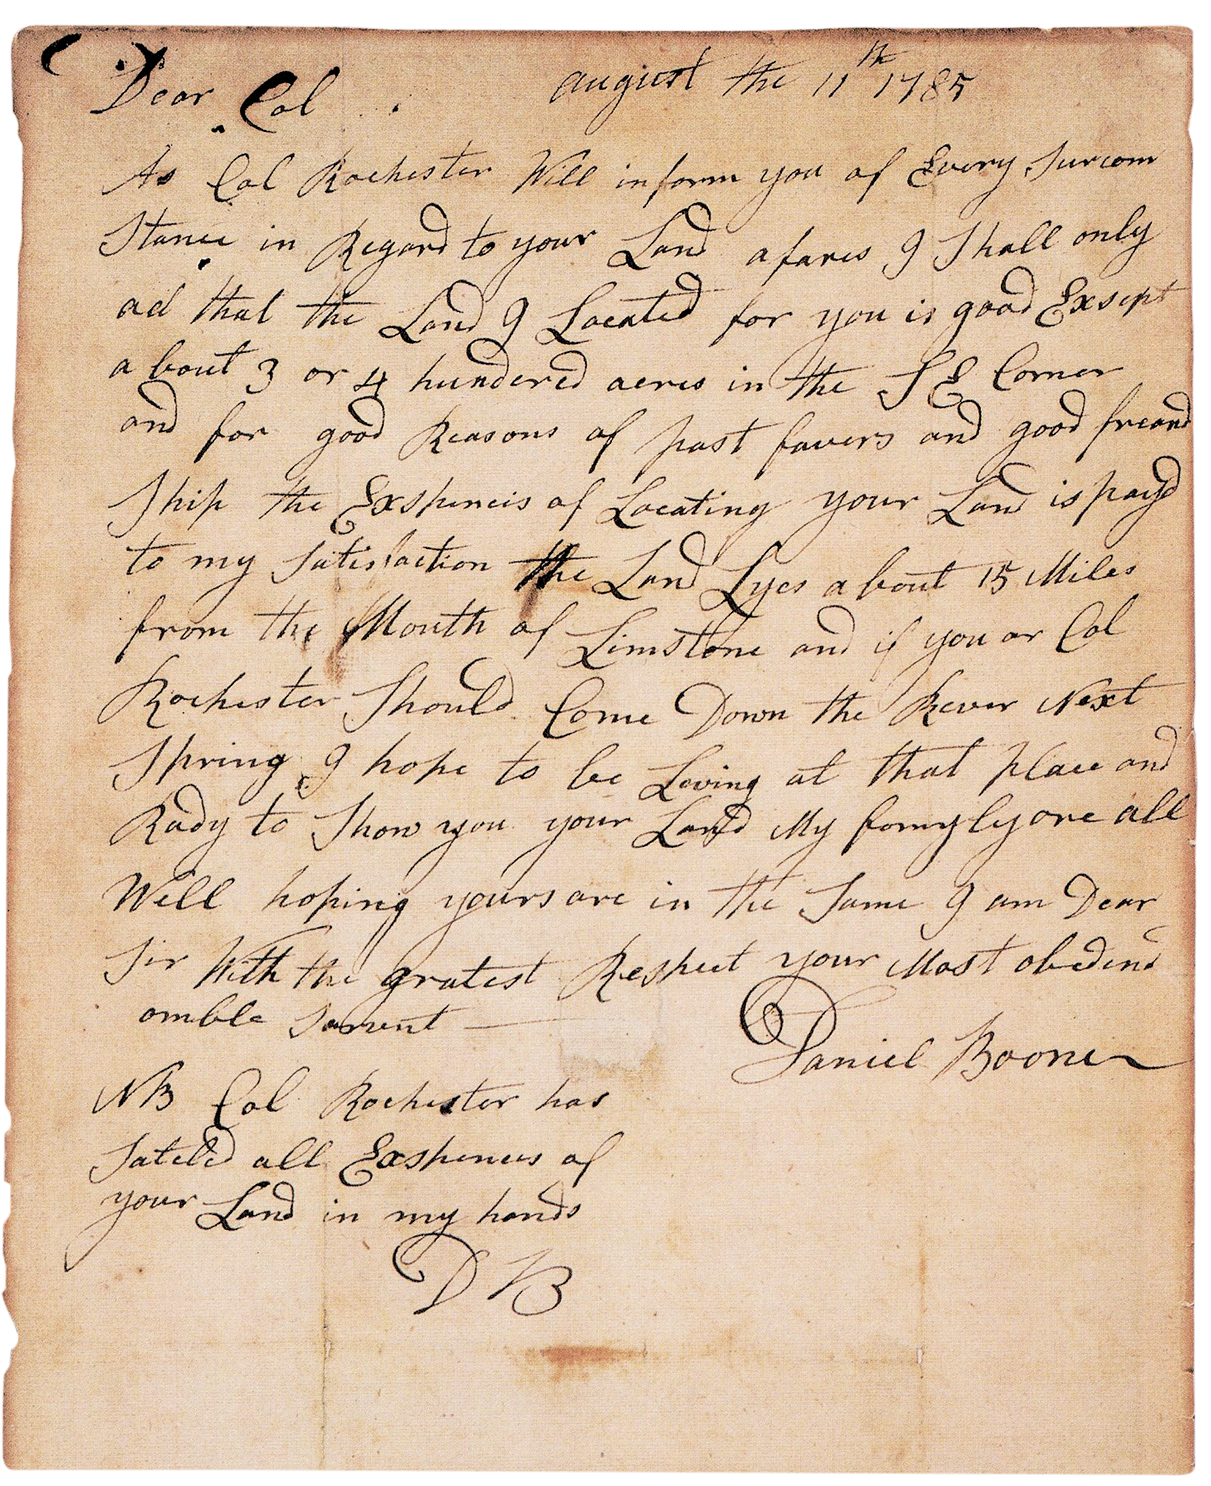 august the 11th 1785
Dear Col
As Col Rochester Will inform you of Every Surcom
Stance in Regard to your Land afares I Shall only
ad that the Land I Located for you is good Exsept
a bout 3 or 4 hundered acres in the S E Corner
and for good Reasons of past favers and good freand
Ship the Exspenceis of Locating your Land is payd
to my Satisfaction the Land Lyes a bout 15 Miles
from the Mouth of Limstone and if you or Col
Rochester Should Come Down the River Next
Spring I hope to be Living at that place and
Rady to Show you your Land My famyly are all
Well hoping yours are in the Same I am Dear
Sir With the gratest Respect your Most obedend
omble Sarvent
Daniel Boone
NB Col Rochester has
Sateled all Exspences of
your Land in my hands
D B